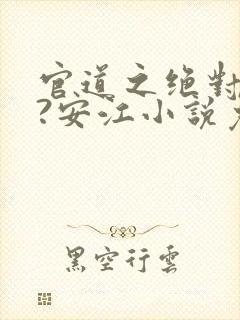 官道之绝對
?安江小說
黑空行雲